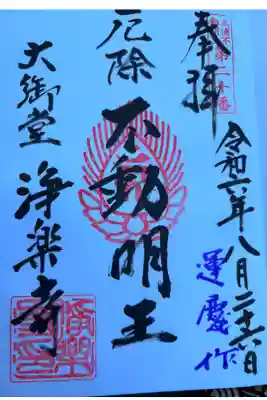 奉拝
第二十番
令和六年八月二十六日
運慶作
厄除
不動明王
大御堂
浄楽寺